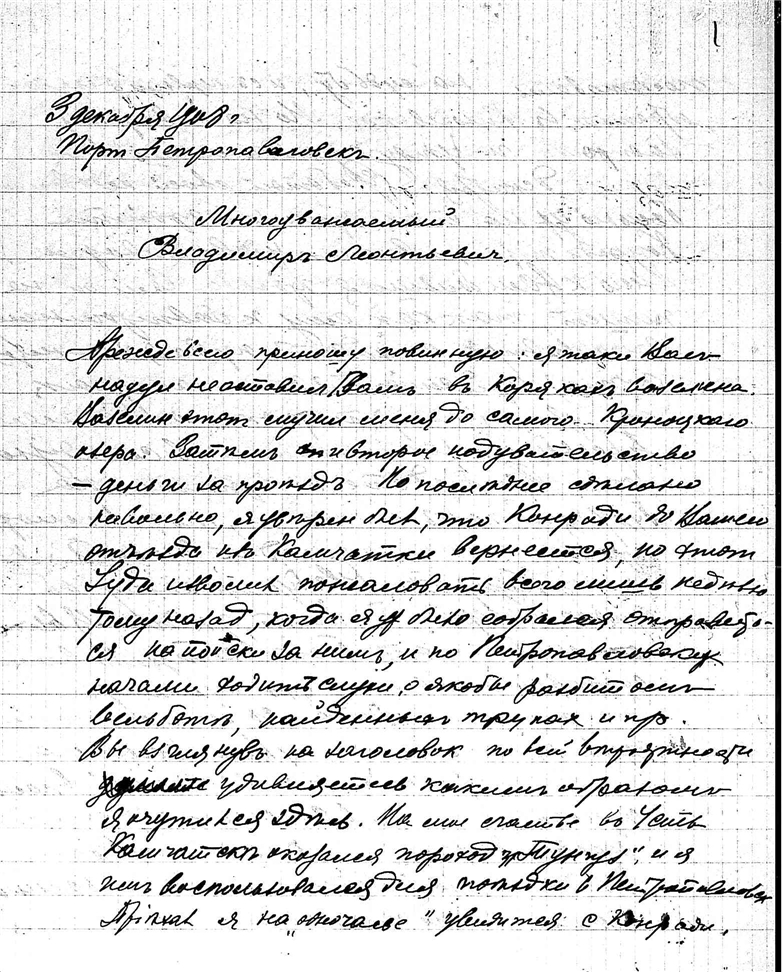 1
3 декабря 1908 г
Портъ Петропавловскъ.
Многоуважаемый
Владимиръ Леонтьевич.
Прежде всего приношу повинную: я таки Васъ
надул не оставил Вамъ въ Корякахъ вазелина.
Вазелин этот мучил меня до самого Кроноцкаго
озера. Затѣмъ и второе надувательство
— деньги за проѣздъ. Но последнее сдѣлано
невольно, я увѣрен был, что Конради до Вашего
отъѣзда изъ Камчатки вернется, но этот
Iуда изволил пожаловать всего лишь недѣлю
тому назад, когда я уж было собрался отправить-
ся на поиски за нимъ, и по Петропавловску
начали ходить слухи о якобы разбитомъ
вельботѣ, найденных трупах и пр.
Вы взглянувъ на заголовок по всей вѣроятности
удивляетесь какимъ образомъ
я очутился здѣсь. На мое счастье въ Усть
Камчатскѣ оказался пароход „Тунгуз", и я
имъ воспользовался для поѣздки в Петропавловск
Пріѣхал я на „авось" увидится с Конради.